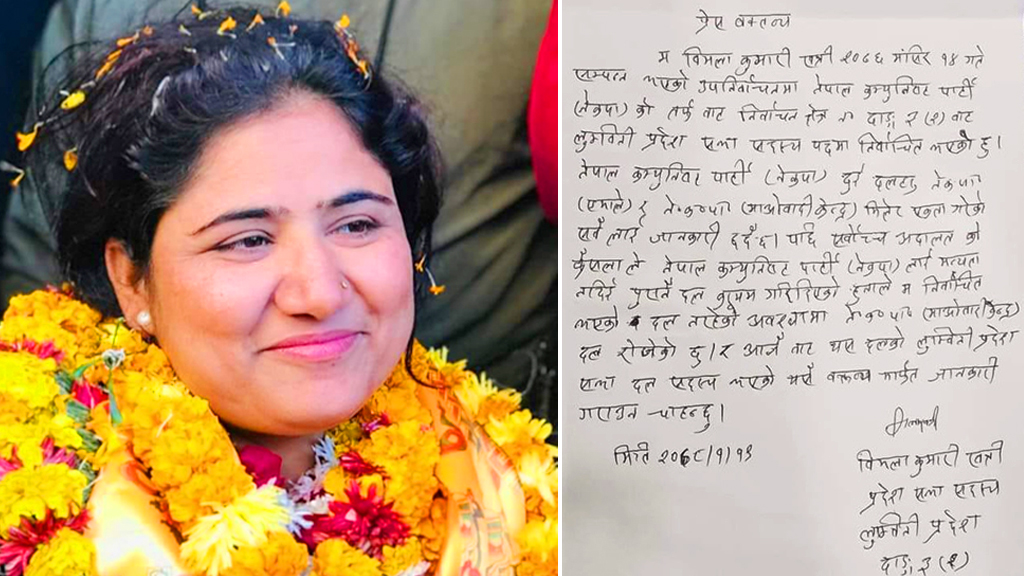 प्रेस वक्तव्य
म विमला कुमारी खत्री २०७६ मंसिर १४ गते
सम्पन्न भएको उपनिर्वाचनमा नेपाल कम्युनिष्ट पार्टी
(नेकपा) को तर्फ बाट निर्वाचन क्षेत्र नं दाङ्ग ३ (२) बाट
लुम्बिनी प्रदेश सभा सदस्य पदमा निर्वाचित भएको हु।
नेपाल कम्युनिष्ट पार्टी (नेकपा) दुई दलहरु नेकपा
(एमाले) र ने.क.पा (माओवादी केन्द्र) मिलेर एकता गरेको
सबै लाई जानकारी हुदैछ। पछि सर्वोच्च अदालत को
फैसला ले नेपाल कम्युनिष्ट पार्टी (नेकपा) लाई मान्यता
नदिई पुरानै दल कायम गरिदिएको हुनाले म निर्वाचित
भएको दल नरहेको अवस्थामा ने.क.पा (माओवादी केन्द्र)
दल रोजेको छु। र आज बाट यस दलको लुम्बिनी प्रदेश
सभा दल सदस्य भएको यसै वक्तव्य मार्फत जानकारी
गराउन चाहन्छु।
मिति २०७८/१/१३
विमला कुमारी खत्री
प्रदेश सभा सदस्य
लुम्बिनी प्रदेश
दाङ्ग ३ (२)